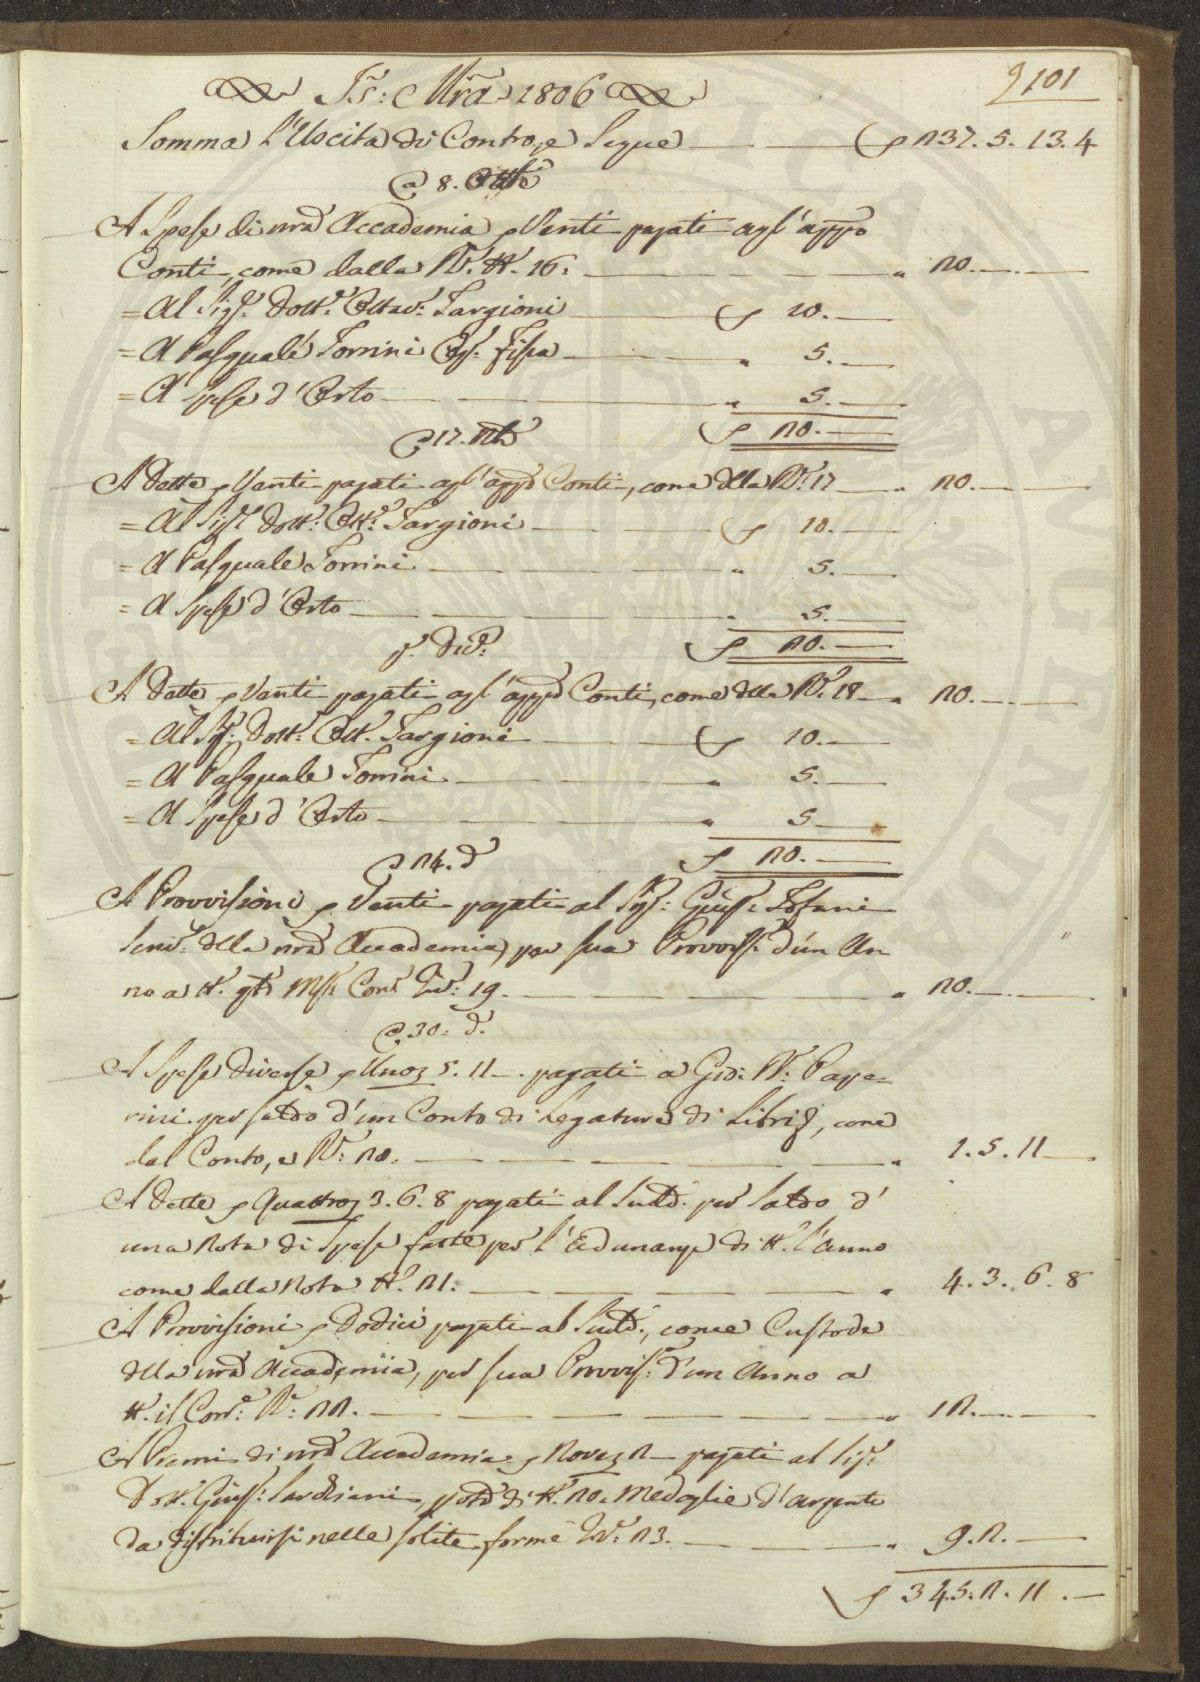 101
Js: Mra 1806
Somma l'Uscita di Contro, e Segue 237. 5. 13. 4
a 8. Ottbre
A Spese di nrã Accademia p Venti pagati agl'appo
Conti, come dalla N: 16: 20.
= Al Sigr. Dottr. Ottav: Targioni 10.
= A Pasquale Tonini 5.
= A Spese d'Orto 5.
20.
A Dette p Venti pagati agl'appo Conti, come dlla N: 17 20.
= Al Sigr Dott: Ott: Targioni 10.
= A Pasquale Tonini 5.
= A Spese d'Orto 5.
p. Dic: 20.
A Dette p Venti pagati agl'appo Conti, come dlla N: 18 20.
= Al Sigr: Dott: Ott. Targioni 10.
= A Pasquale Tonini 5.
= A Spese d'Orto 5
a 24. d 20.
A Provvisioni p Venti pagati al Sigr: Giuse Tofani
dlla nrã Accademia, per sua Provvis: d'un An
no a 19. 20.
a 30: d.
A Spese diverse p Uno 5. 11 pagati a Gio: Pape-
rini per saldo d'un Conto di Legature di Libri, come
dal Conto, e N: 20. 1. 5. 11
A Dette p Quattro 3. 6. 8 pagati al Sudd. per saldo d'
una Nota di Spese fatte per l'Adunanze di l'Anno
come dalla Nota 21. 4. 3. 6. 8
A Provvisioni p Dodici pagati al Sudd:, come Custode
dlla nrã Accademia, per sua Provvis: d'un Anno a
il Corr: N: 22. 12.
A Premi di nrã Accademia p Nove 2 pagati al Sigr:
Dott. Gius: Sarchiani, 20. Medaglie d'argento
da distribuirsi nelle solite forme N: 23. 9. 2.
345. 2. 11.